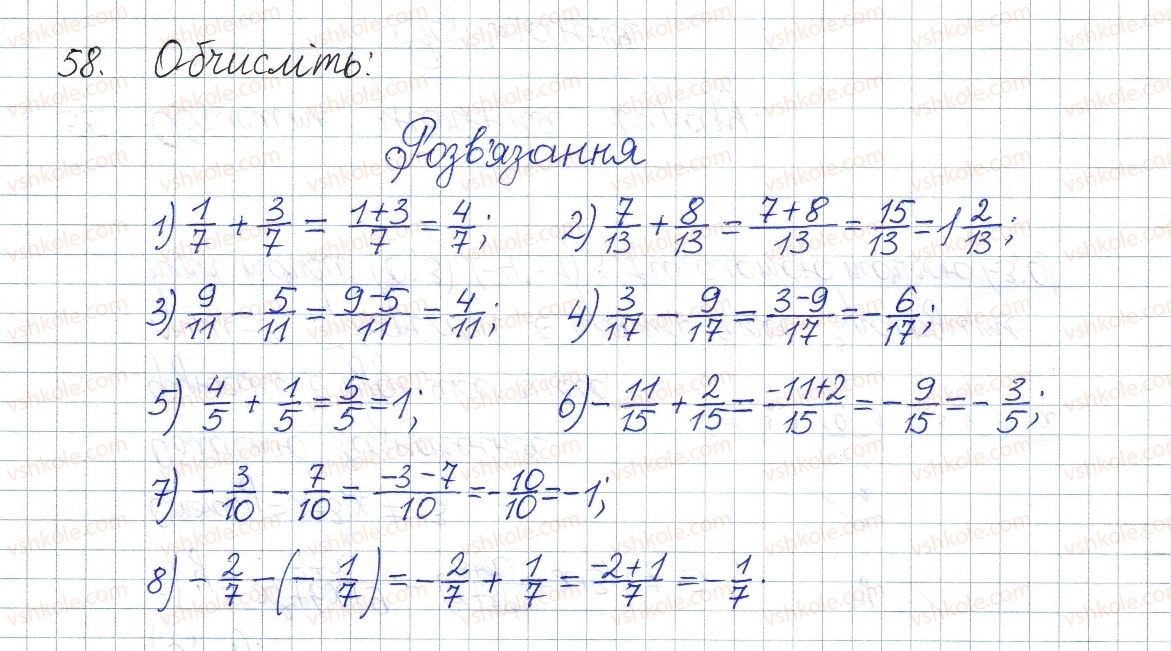 58. Обчисліть:
Розв'язання
1) 1/7 + 3/7 = (1+3)/7 = 4/7; 2) 7/13 + 8/13 = (7+8)/13 = 15/13 = 1 2/13;
3) 9/11 - 5/11 = (9-5)/11 = 4/11; 4) 3/17 - 9/17 = (3-9)/17 = -6/17;
5) 4/5 + 1/5 = 5/5 = 1; 6) -11/15 + 2/15 = (-11+2)/15 = -9/15 = -3/5;
7) -3/10 - 7/10 = (-3-7)/10 = -10/10 = -1;
8) -2/7 - (-1/7) = -2/7 + 1/7 = (-2+1)/7 = -1/7.